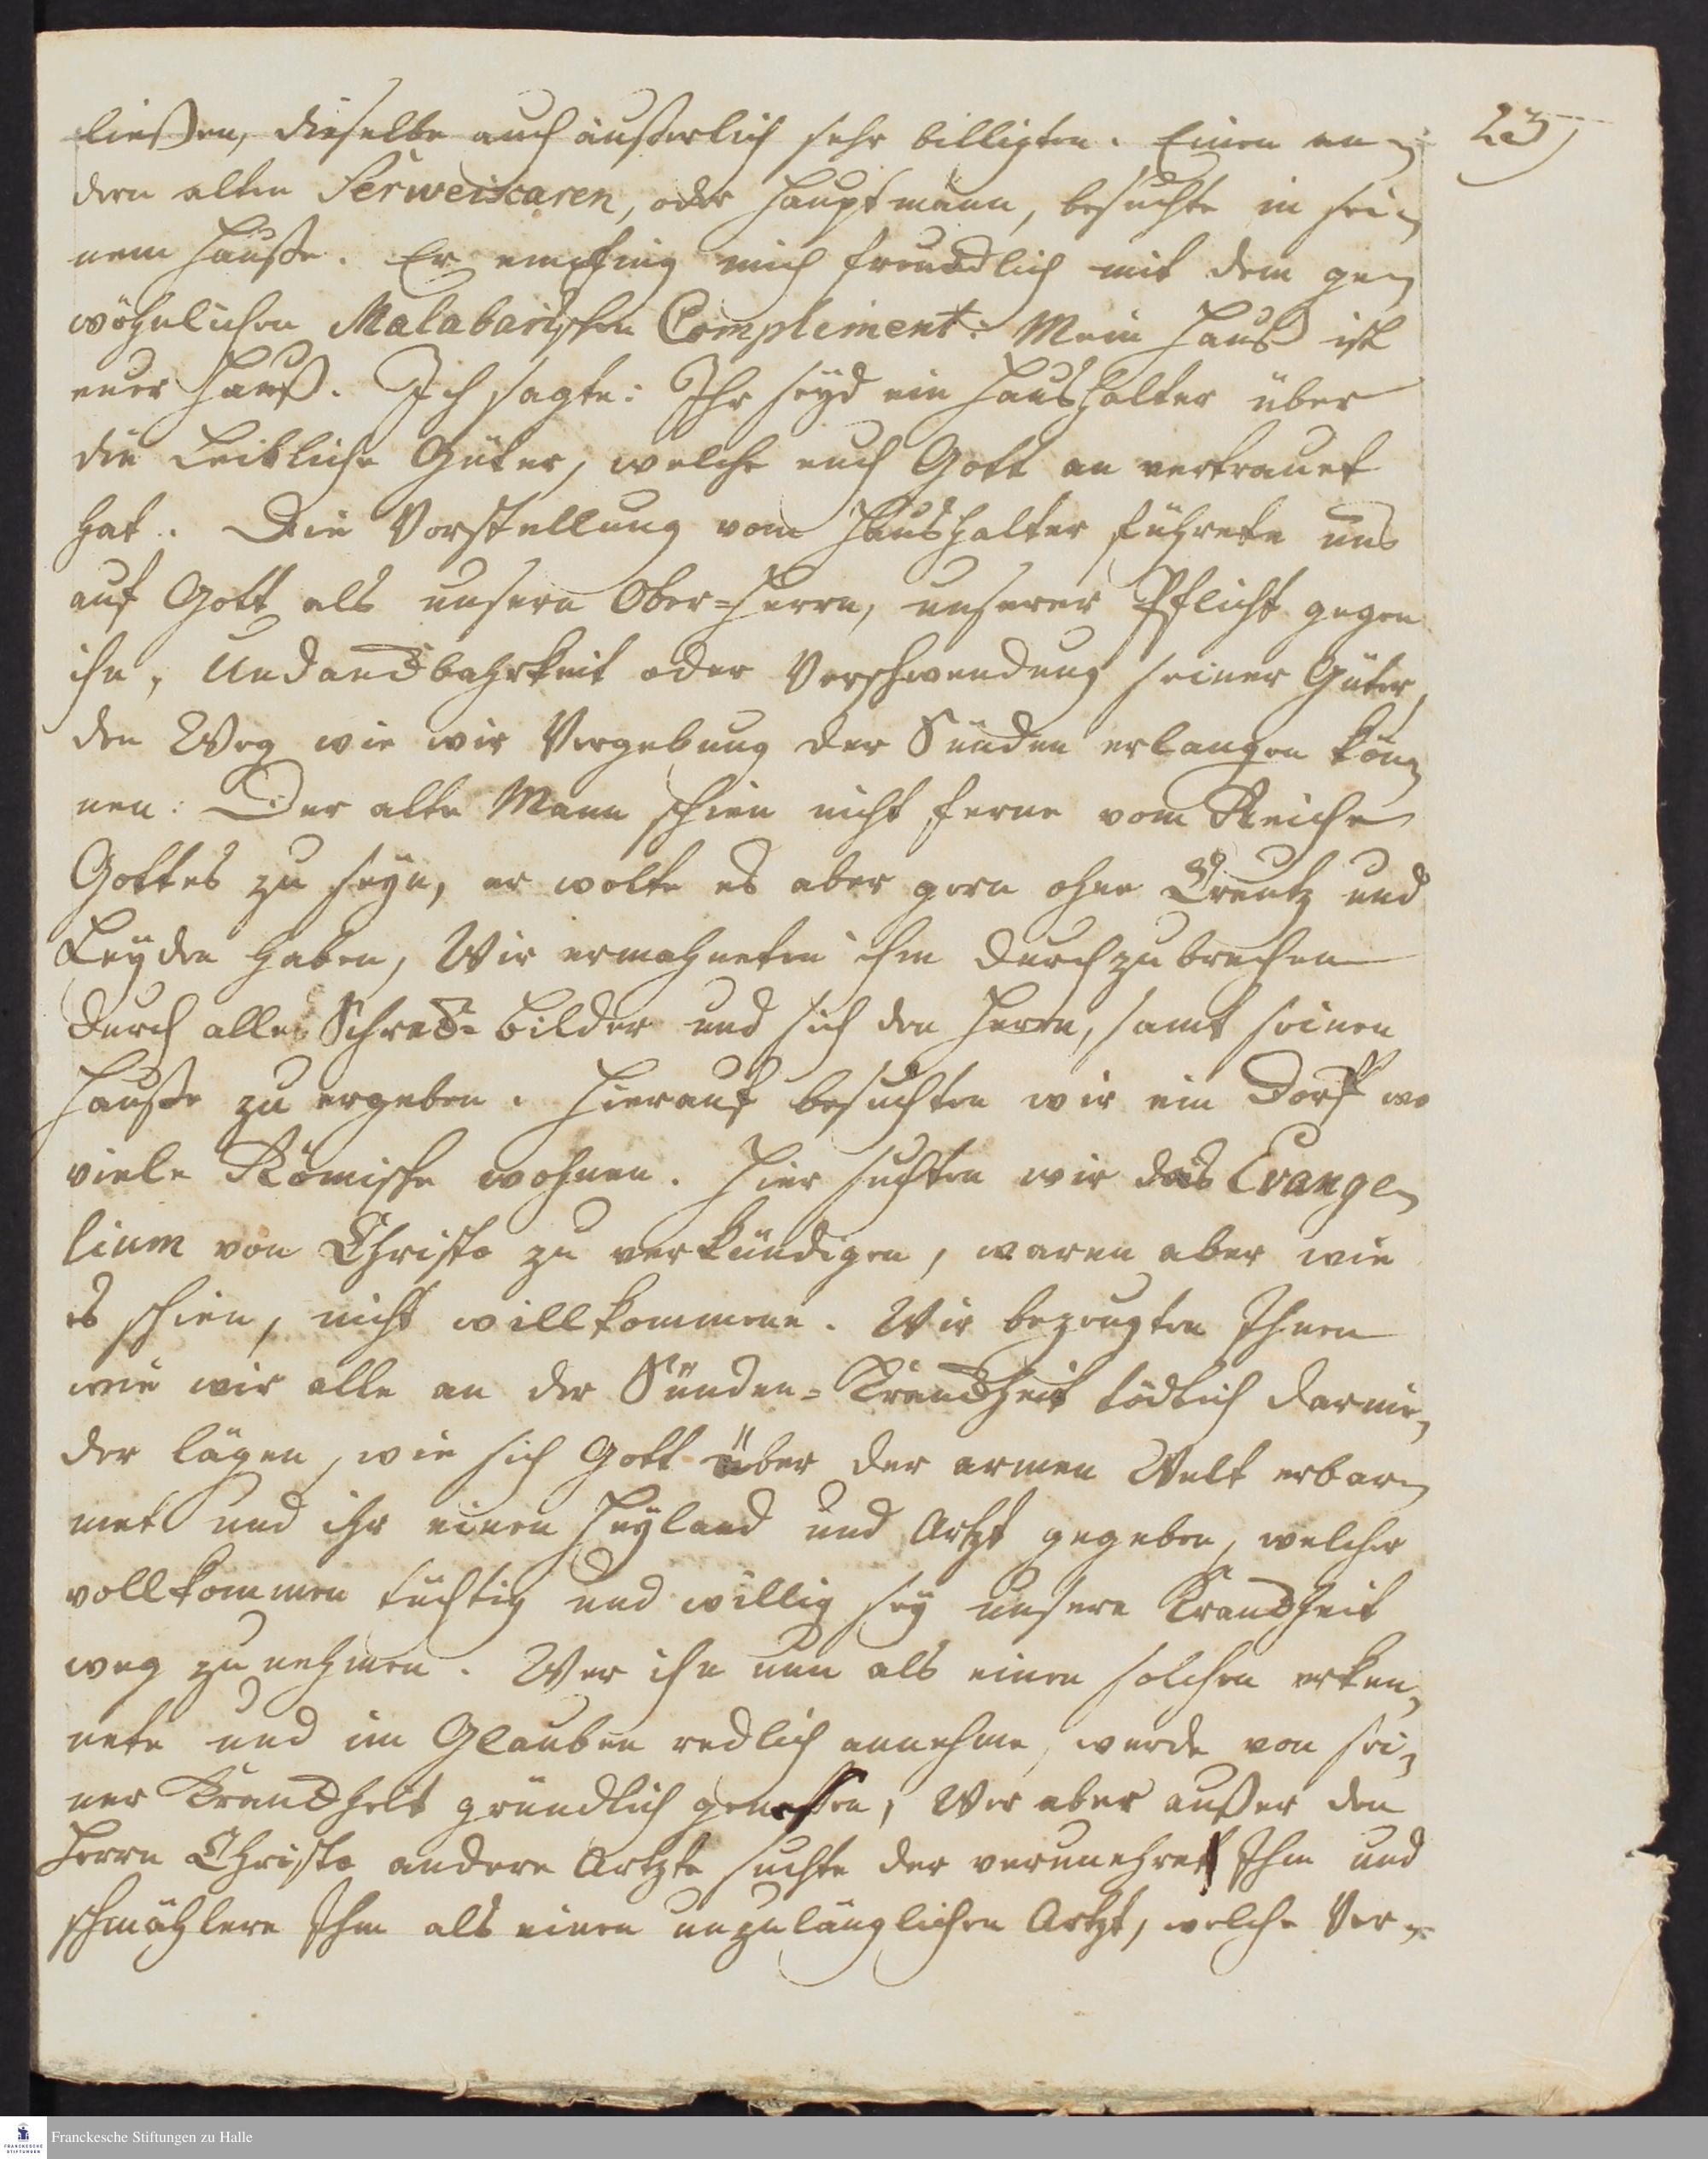 23)
ließen, dieselbe auch äußerlich sehr billigten. Einen an-
dern alten Serweicaren, oder Hauptmann, besuchte in sei-
nem Hauße. Er empfing mich freundlich mit dem ge-
wöhnlichen Malabarischen Compliment: Mein Hauß ist
euer Hauß. Ich sagte: Ihr seyd ein Haushalter über
die Leibliche Güter, welche euch Gott an vertrauet
hat. Die Vorstellung vom Haushalter führete uns
auf Gott als unsern Ober-Herrn, unserer Pflicht gegen
ihn, Undanckbahrkeit oder Verschwendung seiner Güter,
den Weg wie wir Vergebung der Sünden erlangen kön-
nen. Der alte Mann schien nicht ferne vom Reiche
Gottes zu seyn, er wolte es aber gern ohne Creutz und
Leyden haben, Wir ermahneten ihn durchzubrechen
durch alle Schreck-bilder und sich den Herrn, samt seinen
Hauße zu ergeben. Hierauf besuchten wir ein Dorf wo
viele Römische wohnen. Hier suchten wir das Evange-
lium von Christo zu verkündigen, waren aber wie
es schien, nicht willkommene. Wir bezeugten Ihnen
wie wir alle an der Sünden-Kranckheit tödlich darnie-
der lägen, wie sich Gott über der armen Welt erbar-
met und ihr einen Heyland und Artzt gegeben, welcher
vollkommen tüchtig und willig sey unsere Kranckheit
weg zu nehmen. Wer ihn nun als einen solchen erken-
nete und im Glauben redlich annehme, werde von sei-
ner Kranckheit gründlich genesen, Wer aber außer den
Herrn Christo andere Artzte suchte der verunehret Ihm und
schmählere Ihm als einen unzulänglichen Artzt, welche Ver-
Franckesche Stiftungen zu Halle
FRANCKESCHE
STIFTUNGEN